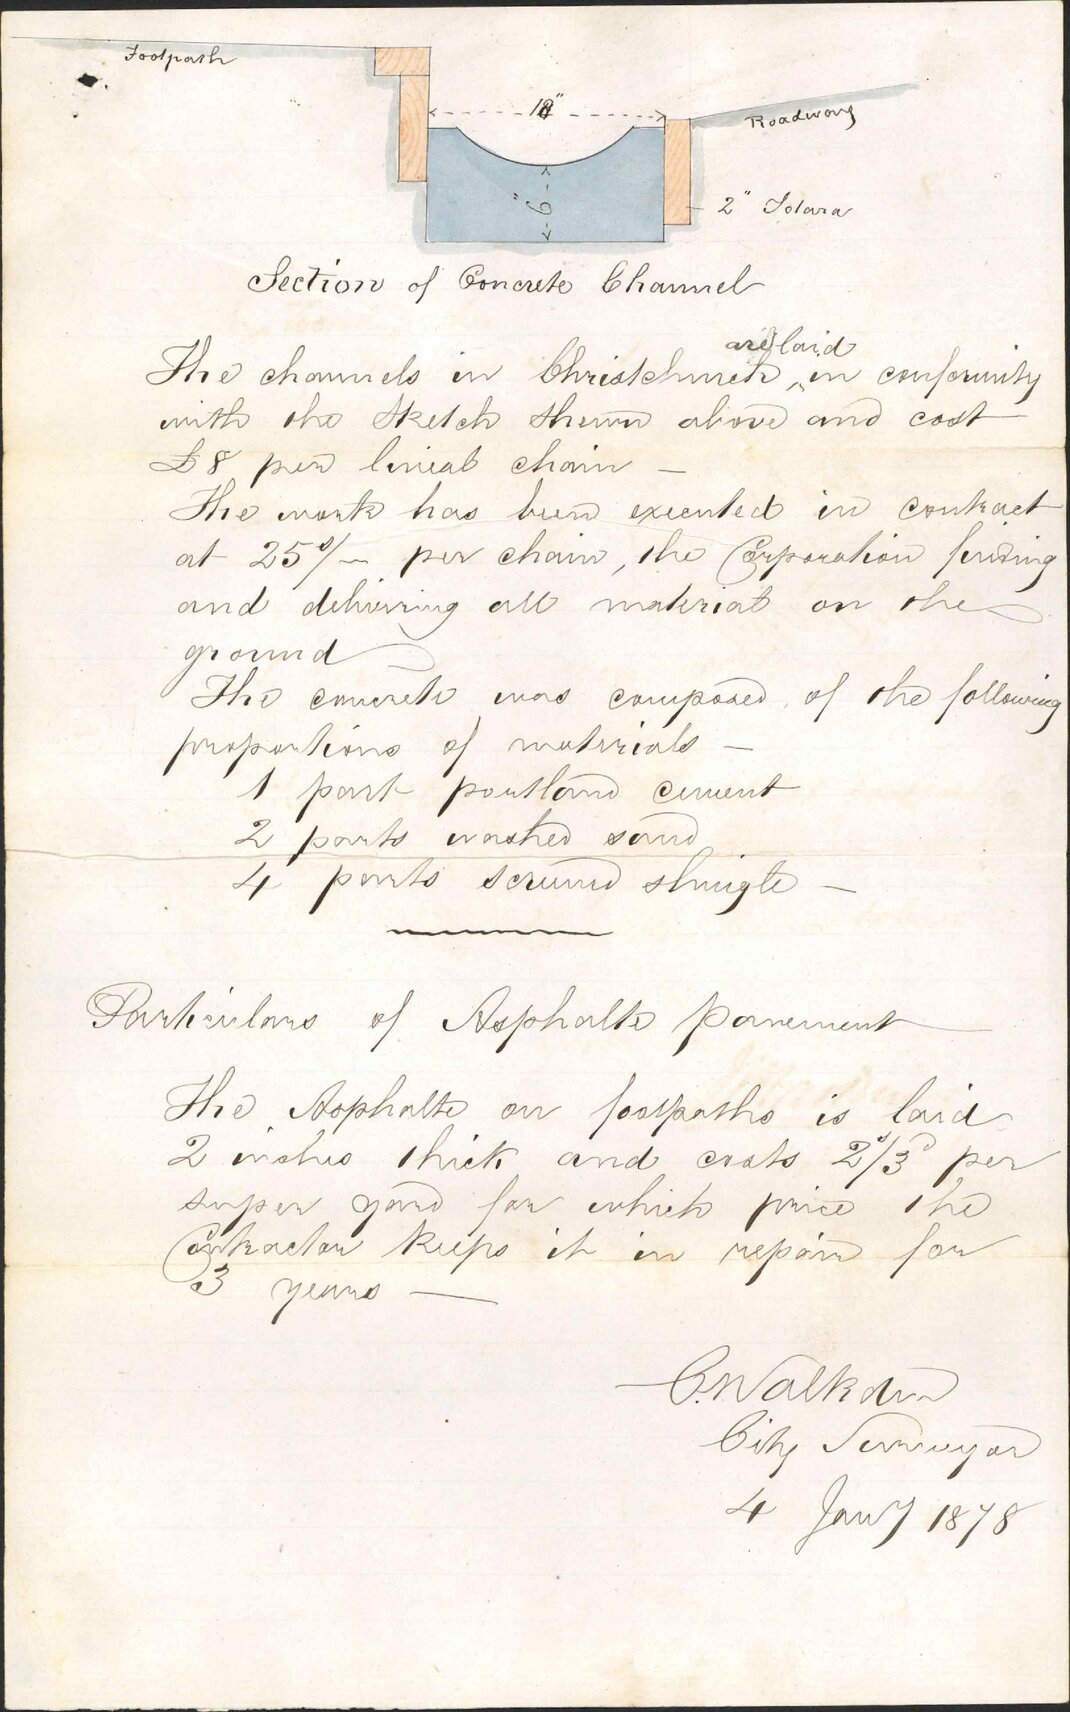 Footpath
18"
Roadway
6"
2" Totara
Section of Concrete Channel
are laid
The channels in Christchurch ^ in conformity
with the Sketch shewn above and cost
£8 per lineal chain —
The work has been executed in contract
at 25s/- per chain, the Corporation finding
and delivering all material on the
ground
The concrete was composed of the following
proportions of materials —
1 part portland cement
2 parts washed sand
4 parts screened shingle —
Particulars of Asphalte pavement
The Asphalte on footpaths is laid
2 inches thick and costs 2s/3d per
super yard for which price the
Contractor keeps it in repair for
3 years —
C. Walkden
City Surveyor
4 Jany 1878